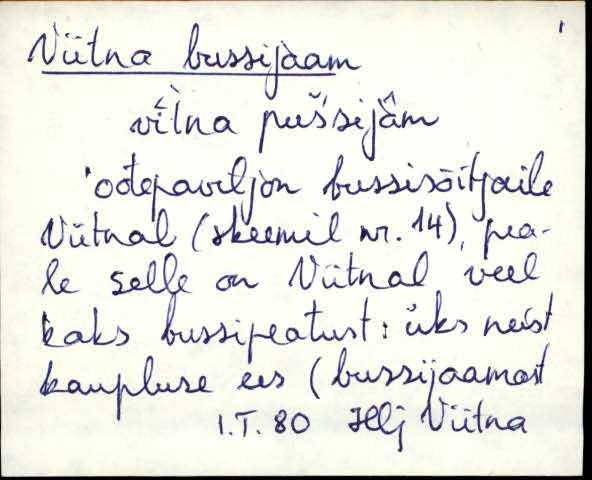 1
Viitna bussijaam
vì͔tna pušsijȃm
'ootepaviljon bussisõitjaile
Viitnal (skeemil nr. 14), pea-
le selle on Viitnal veel
kaks bussipeatust: üks neist
kaupluse ees (bussijaamast
I.T. 80 Hlj Viitna